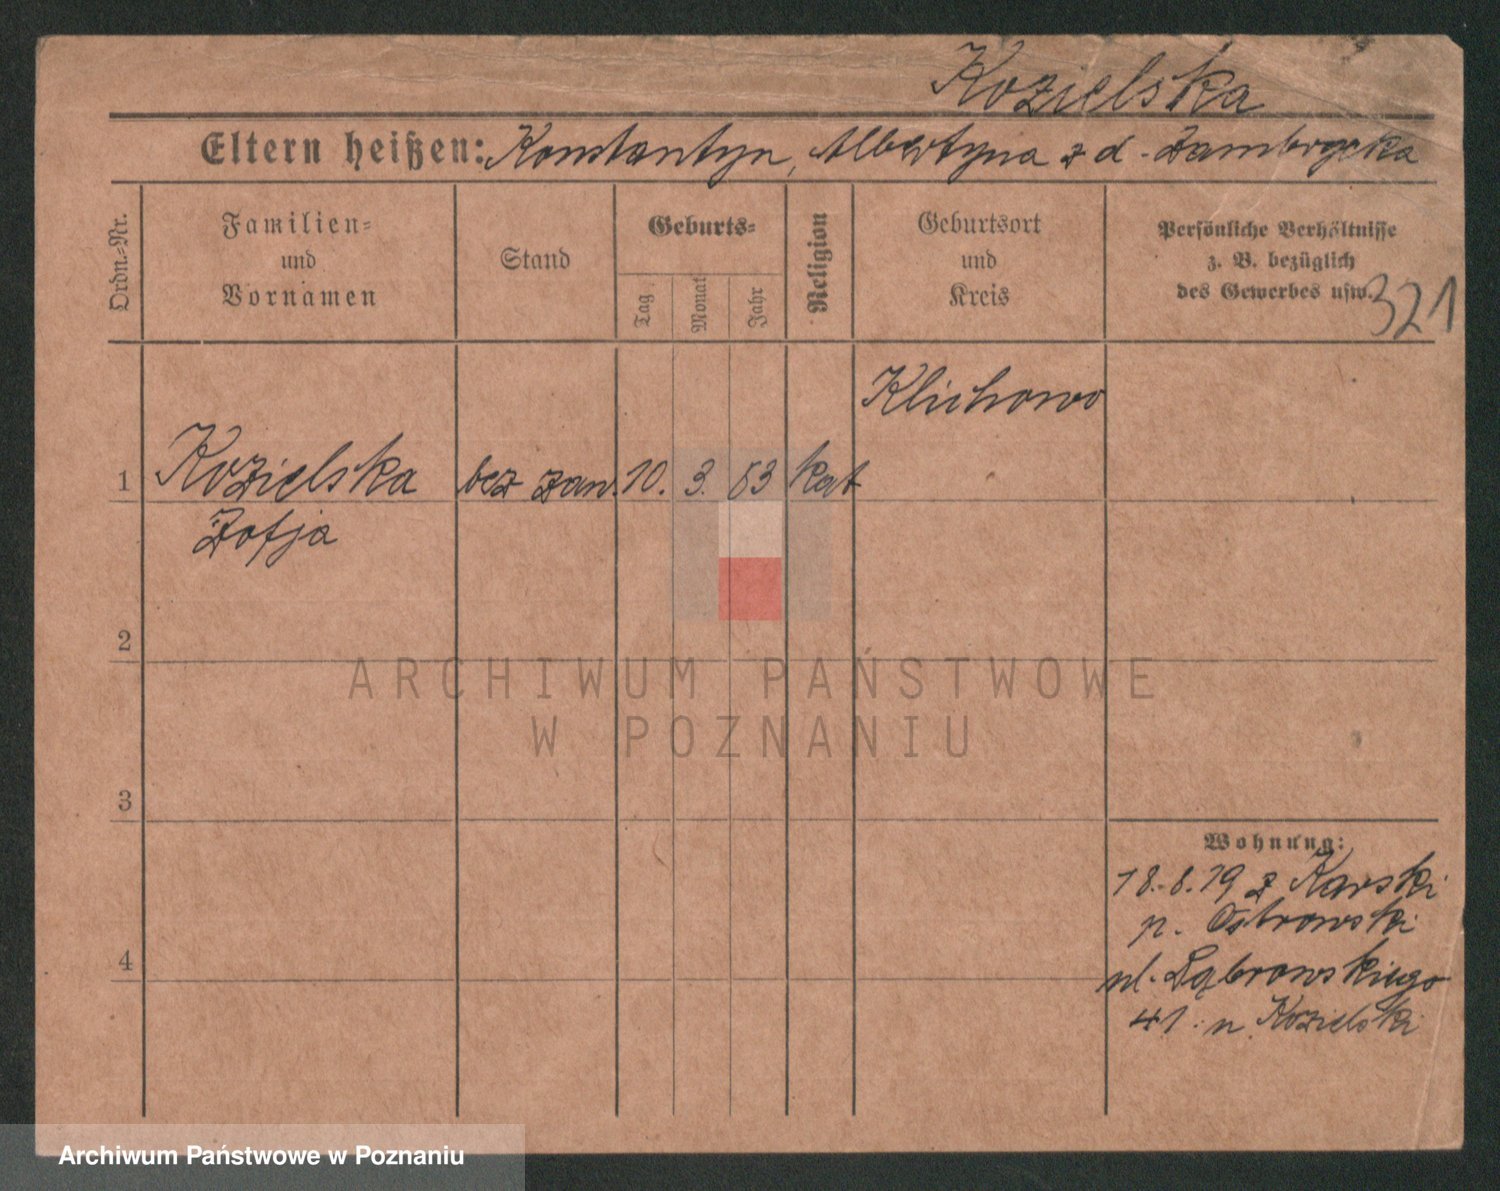 Kozielska
Eltern heißen: Konstantyn, Albertyna z d.
Ordn.-Nr.
Familien-
und
Vornamen
Stand
Geburts-
Tag
Monat
Jahr
Religion
Geburtsort
und
Kreis
Persönliche Verhältnisse
z. B. bezüglich
des Gewerbes usw.
321
Klichowo
1 Kozielska bez zaw. 10. 3. 63 kat
Zofja
2
3
4
Wohnung:
18.-8.19 z Karski
p. Ostrowski
ul. Dąbrowskiego
41 Kozielski
ARCHIWUM PAŃSTWOWE
W POZNANIU
Archiwum Państwowe w Poznaniu